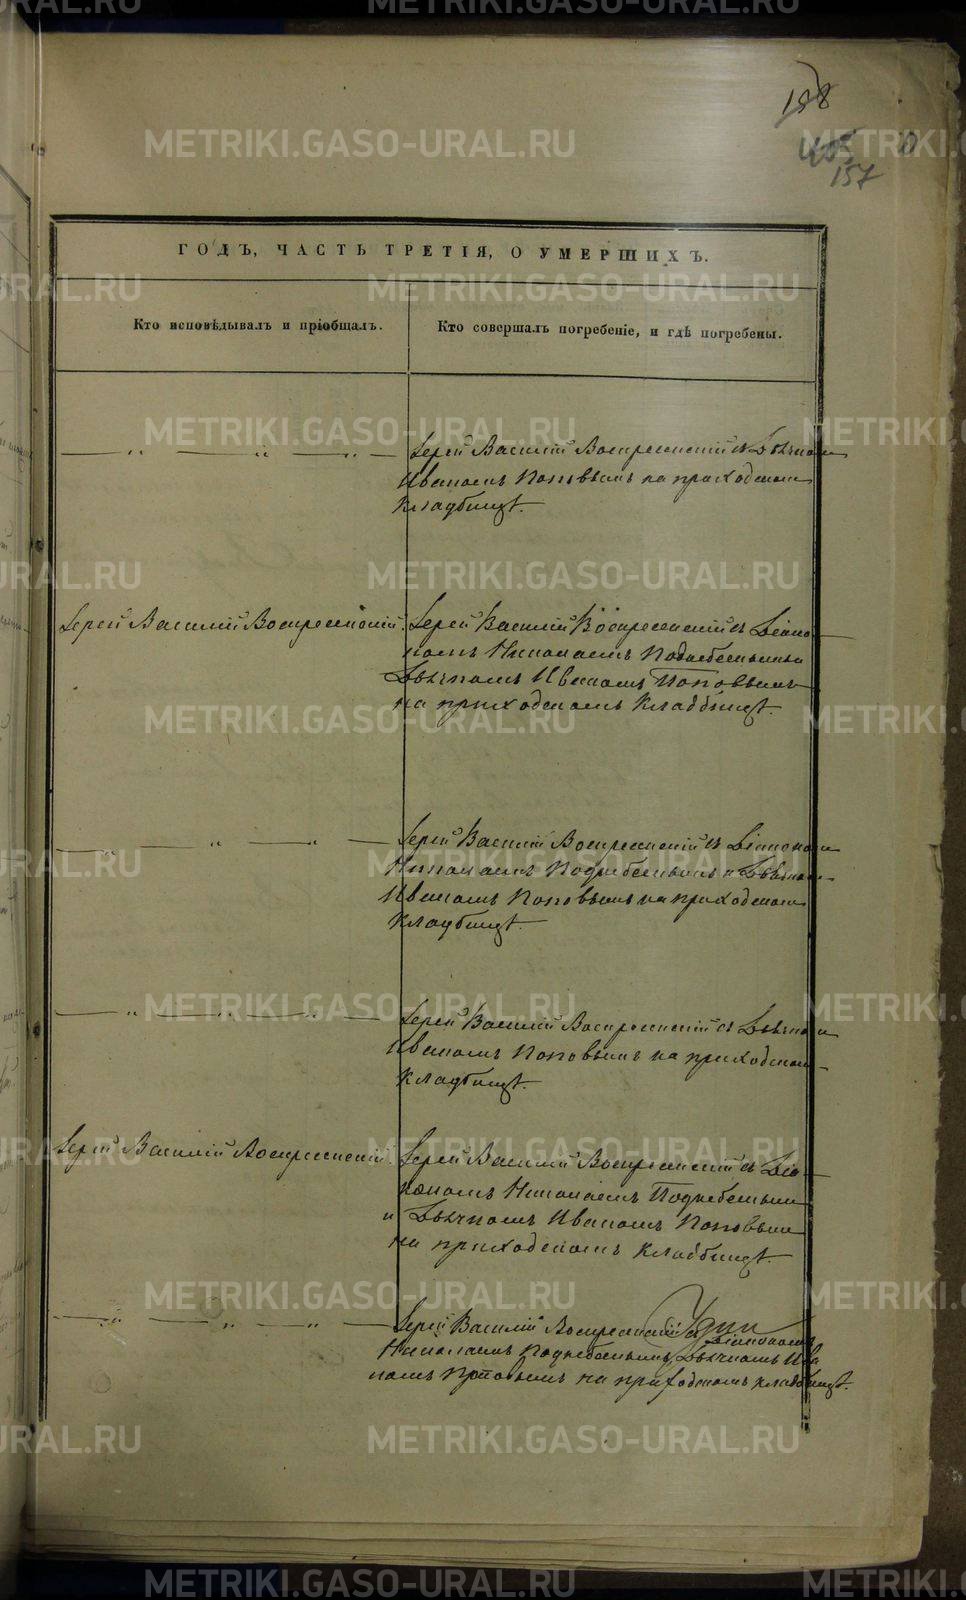 158
405
157
ГОДЪ, ЧАСТЬ ТРЕТІЯ, О УМЕРШИХЪ.
Кто исповѣдывалъ и пріобщалъ.
Кто совершалъ погребеніе, и гдѣ погребены.
— „ „ „ —
Іерей Василій Воскресенскій съ Дьячкомъ
Иваномъ Поповымъ на приходскомъ
кладбищѣ.
Іерей Василій Воскресенскій.
Іерей Василій Воскресенскій съ Діако-
номъ Николаемъ Поднебеснымъ и
Дьячкомъ Иваномъ Поповымъ
на приходскомъ кладбищѣ.
— „ „ „ —
Іерей Василій Воскресенскій съ Діакономъ
Николаемъ Поднебеснымъ и Дьячкомъ
Иваномъ Поповымъ на приходскомъ
кладбищѣ.
— „ „ „ —
Іерей Василій Воскресенскій съ Дьячкомъ
Иваномъ Поповымъ на приходскомъ
кладбищѣ.
Іерей Василій Воскресенскій.
Іерей Василій Воскресенскій съ Діа-
кономъ Николаемъ Поднебеснымъ
и Дьячкомъ Иваномъ Поповымъ
на приходскомъ кладбищѣ.
— „ „ „ —
Іерей Василій Воскресенскій съ Діакономъ
Николаемъ Поднебеснымъ, Дьячкомъ Ива
номъ Поповымъ на приходскомъ кладбищѣ.
METRIKI.GASO-URAL.RU